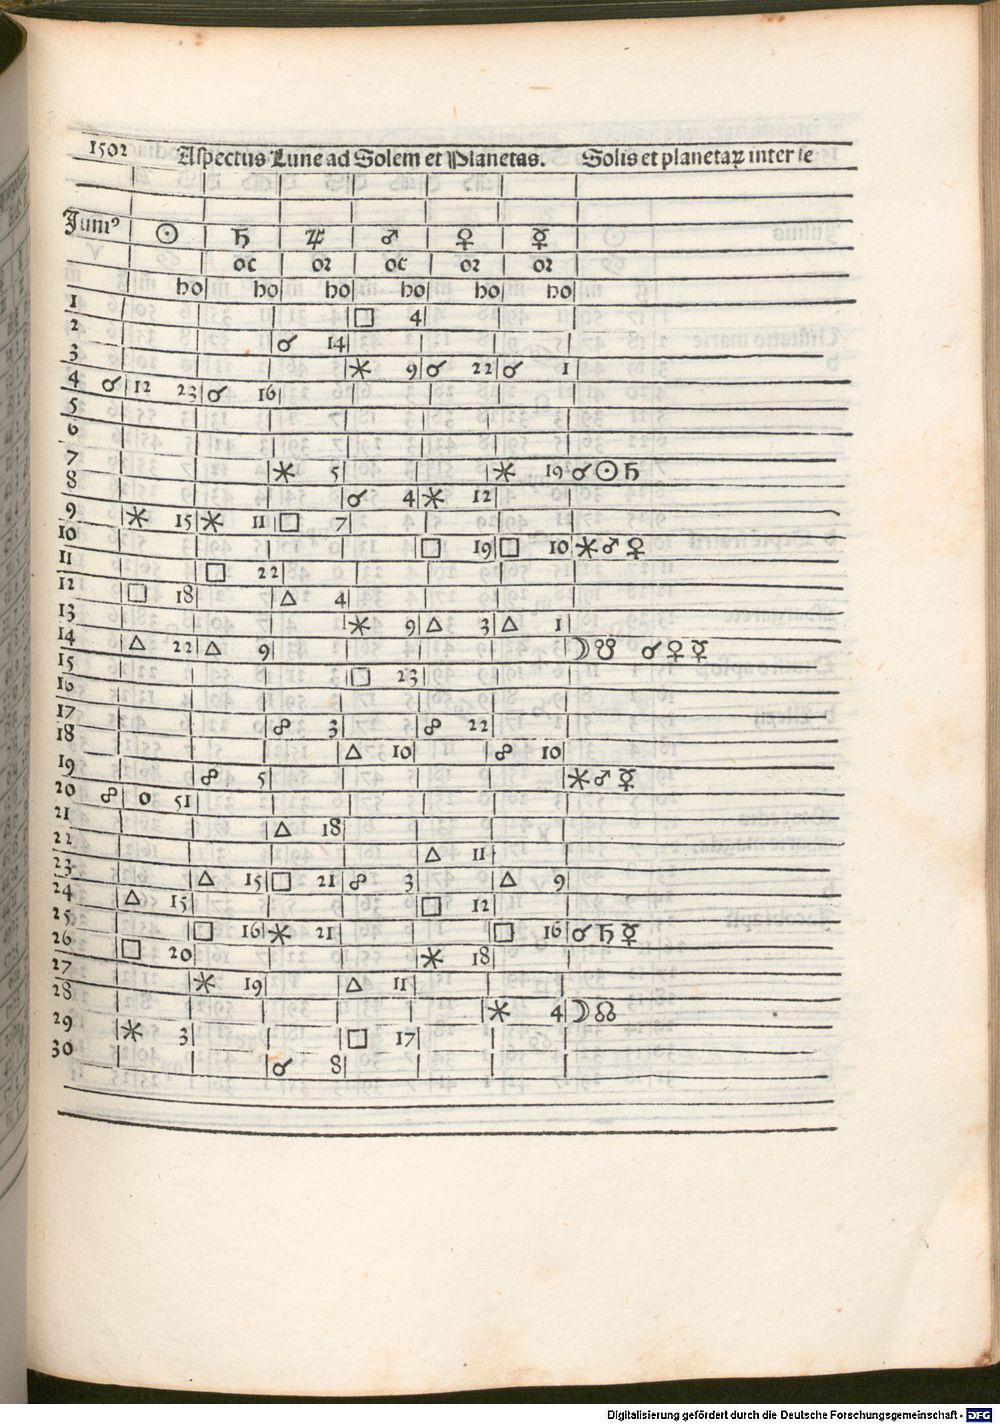 1502 Aspectus Lune ad Solem et Planetas. Solis et planetaꝝ inter se
Juniꝰ ☉ ♄ ♃ ♂ ♀ ☿
oc or oc or or
ho ho ho ho ho ho
1 □ 4
2 ☌ 14
3 ⚹ 9 ☌ 22 ☌ 1
4 ☌ 12 23 ☌ 16
5
6
7 ⚹ 5 ⚹ 19 ☌ ☉ ♄
8 ☌ 4 ⚹ 12
9 ⚹ 15 ⚹ 11 □ 7
10 □ 19 □ 10 ⚹ ♂ ♀
11 □ 22
12 □ 18 △ 4
13 ⚹ 9 △ 3 △ 1
14 △ 22 △ 9 ☽ ☋ ☌ ♀ ☿
15 □ 23
16
17 ☍ 3 ☍ 22
18 △ 10 ☍ 10
19 ☍ 5 ⚹ ♂ ☿
20 ☍ 0 51
21 △ 18
22 △ 11
23 △ 15 □ 21 ☍ 3 △ 9
24 △ 15 □ 12
25 □ 16 ⚹ 21 □ 16 ☌ ♄ ☿
26 □ 20 ⚹ 18
27 ⚹ 19 △ 11
28 ⚹ 4 ☽ ☊
29 ⚹ 3 □ 17
30 ☌ 8
Digitalisierung gefördert durch die Deutsche Forschungsgemeinschaft - DFG